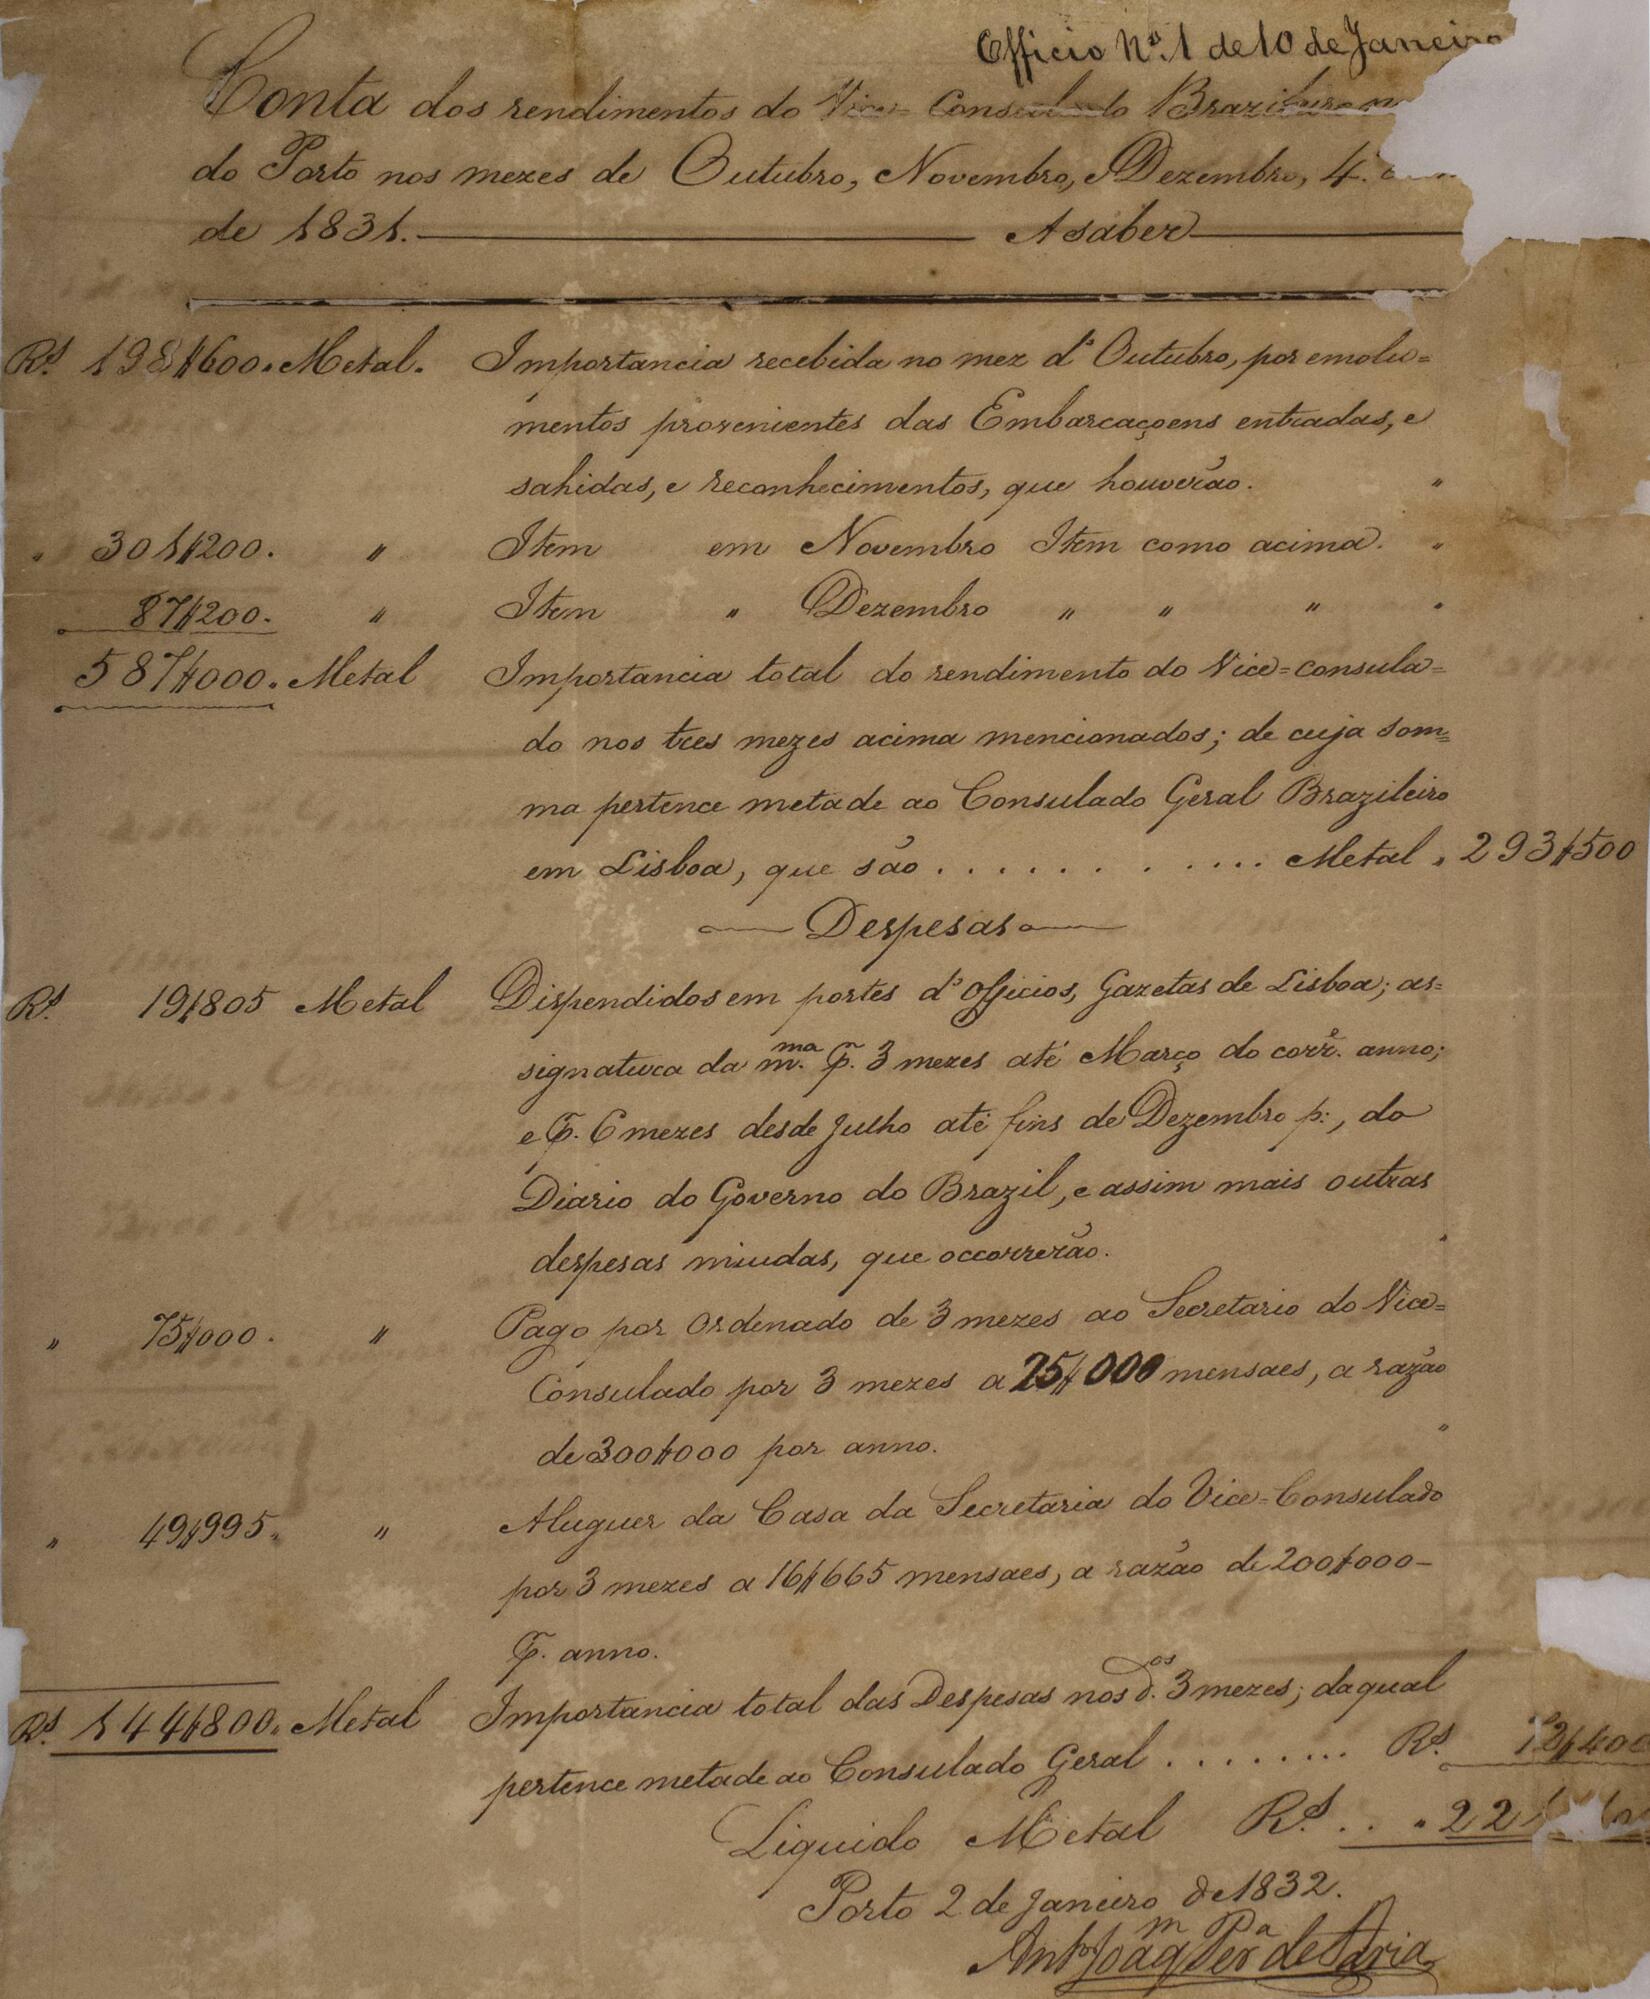 Officio Nº 1 de 10 de Janeiro
Conta dos rendimentos do Vice-Consulado Brazileiro
do Porto nos mezes de Outubro, Novembro, e Dezembro, 4.
de 1831. A saber
Rs. 198$600. Metal. Importancia recebida no mez d'Outubro, por emolu=
mentos provenientes das Embarcaçoens entradas, e
sahidas, e reconhecimentos, que houverão. "
" 301$200. " Item em Novembro Item como acima. "
87$200. " Item " Dezembro " " " "
587$000. Metal Importancia total do rendimento do Vice=consula=
do nos tres mezes acima mencionados; de cuja som=
ma pertence metade ao Consulado Geral Brazileiro
em Lisboa, que são . . . . . . . . . . . . Metal " 293$500
Despesas
Rs. 19$805 Metal Dispendidos em portes d'Officios, Gazetas de Lisboa; as=
signatura da m.ma p. 3 mezes até Março do corr.e anno;
e p. 6 mezes desde Julho até fins de Dezembro p:, do
Diario do Governo do Brazil, e assim mais outras
despesas miudas, que occorrerão. "
" 75$000. " Pago por Ordenado de 3 mezes ao Secretario do Vice=
Consulado por 3 mezes a 25$000 mensaes, a razão
de 300$000 por anno. "
" 49$995. " Aluguer da Casa da Secretaria do Vice=Consulado
por 3 mezes a 16$665 mensaes, a razão de 200$000-
p. anno.
Rs. 144$800. Metal Importancia total das Despesas nos d.os 3 mezes; da qual
pertence metade ao Consulado Geral . . . . . . . . Rs. 72$400
Liquido Metal Rs. . . " 221$
Porto 2 de Janeiro de 1832.
Antº Joaqm Perª de Faria